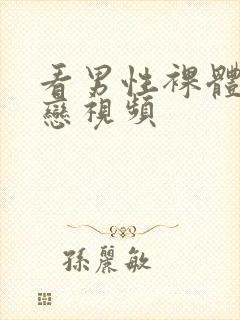 看男性裸體
戀視頻
孫麗敏